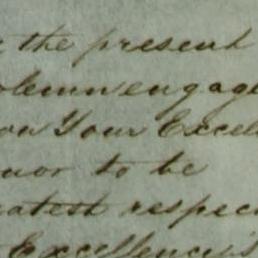 the present
olemn engage
Your Excell
nor to be
eatest respec
Excellency's